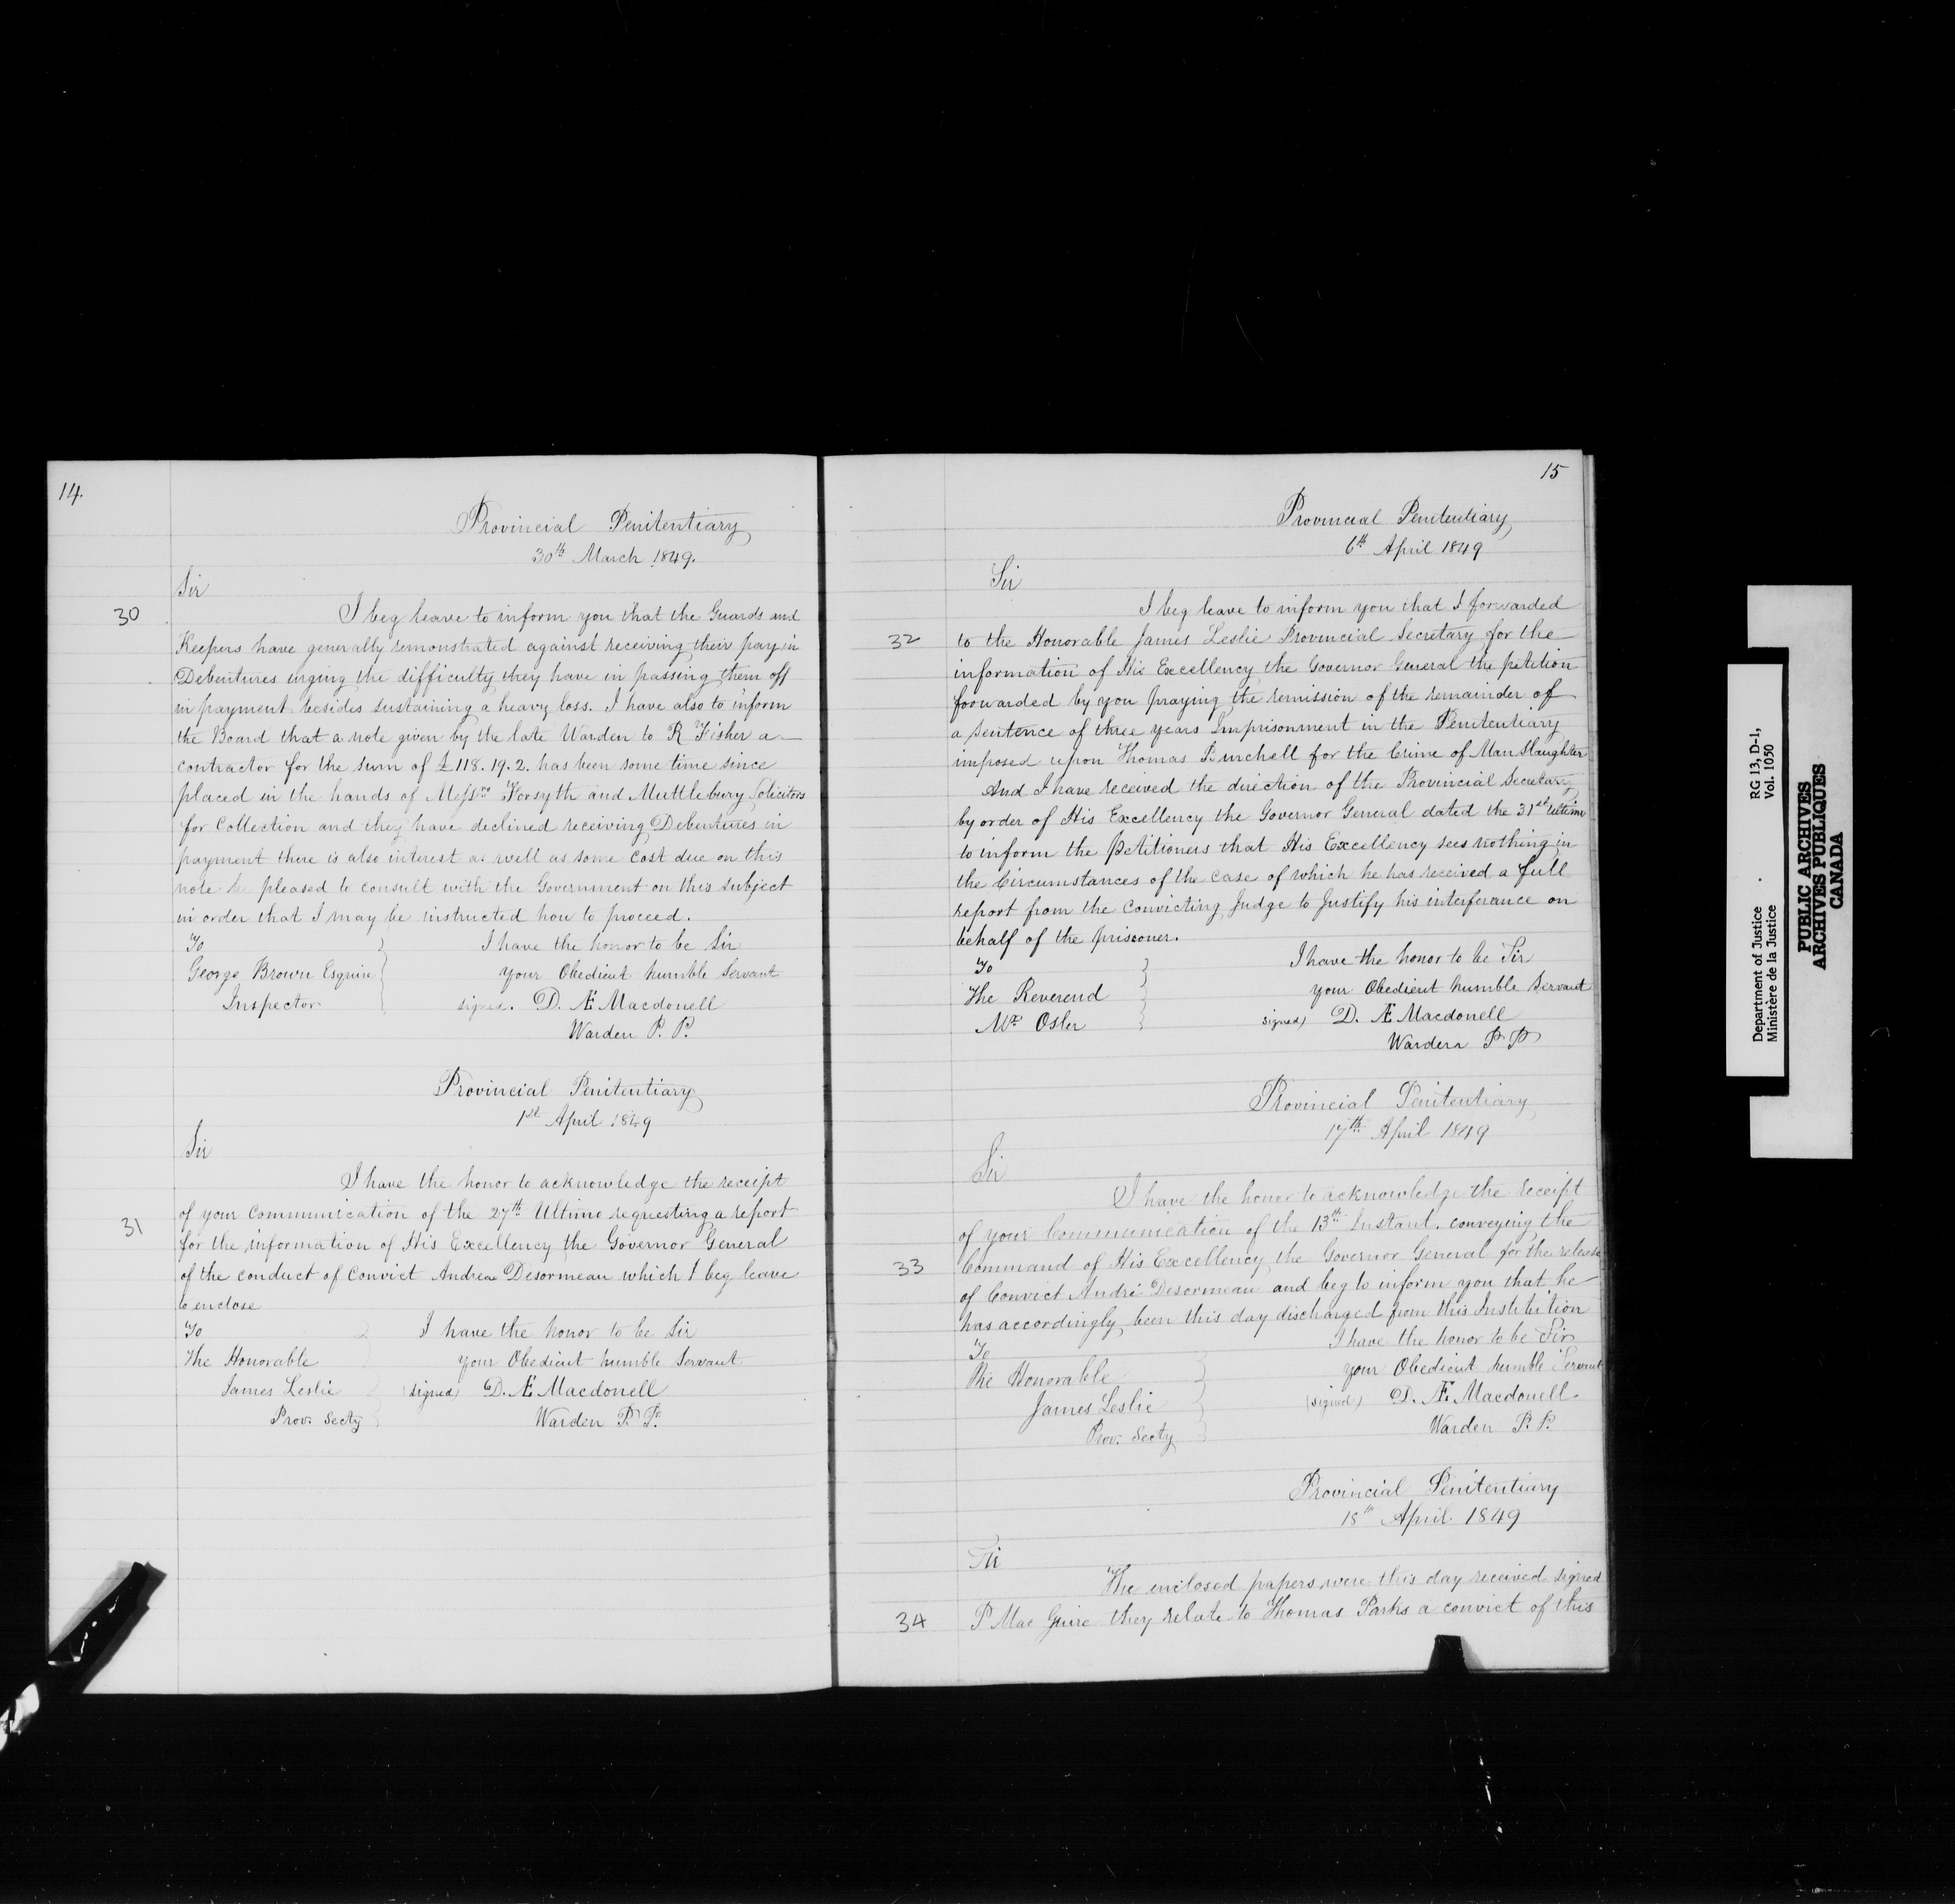 14.
Provincial Penitentiary
30th March 1849.
Sir
30
I beg leave to inform you that the Guards and
Keepers have generally remonstrated against receiving their pay in
Debentures urging the difficulty they have in passing them off
in payment besides sustaining a heavy loss. I have also to inform
the Board that a note given by the late Warden to R Fisher a
contractor for the sum of £118.19.2. has been some time since
placed in the hands of Messrs Forsyth and Muttlebury Solicitors
for Collection and they have declined receiving Debentures in
payment there is also interest as well as some cost due on this
note be pleased to consult with the Government on this subject
in order that I may be instructed how to proceed.
To
I have the honor to be Sir
George Brown Esquire
your Obedient humble Servant
Inspector
signed. D. Æ Macdonell
Warden P. P.
Provincial Penitentiary
1st April 1849
Sir
I have the honor to acknowledge the receipt
31
of your Communication of the 27th Ultimo requesting a report
for the information of His Excellency the Governor General
of the conduct of Convict Andrew Desormeau which I beg leave
to enclose
To
I have the honor to be Sir
The Honorable
your Obedient humble Servant
James Leslie
(signed) D. Æ Macdonell
Prov. Secty
Warden P. P.
15
Provincial Penitentiary
6th April 1849
Sir
I beg leave to inform you that I forwarded
32
to the Honorable James Leslie Provincial Secretary for the
information of His Excellency the Governor General the petition
forwarded by you praying the remission of the remainder of
a sentence of three years Imprisonment in the Penitentiary
imposed upon Thomas Burchell for the Crime of Man Slaughter
And I have received the direction of the Provincial Secretary
by order of His Excellency the Governor General dated the 31st Ultimo
to inform the Petitioners that His Excellency sees nothing in
the Circumstances of the case of which he has received a full
report from the Convicting Judge to Justify his interferance on
behalf of the prisoner.
To
I have the honor to be Sir
The Reverend
your Obedient humble Servant
Mr Osler
signed) D. Æ Macdonell
Warden P P
Provincial Penitentiary
17th April 1849
Sir
I have the honor to acknowledge the receipt
of your Communication of the 13th Instant. conveying the
33
Command of His Excellency the Governor General for the release
of Convict André Desormeau and beg to inform you that he
has accordingly been this day discharged from this Institution
To
I have the honor to be Sir
The Honorable
your Obedient humble Servant
James Leslie
(signed) D. Æ. Macdonell
Prov. Secty
Warden P. P.
Provincial Penitentiary
18th April 1849
Sir
The enclosed papers were this day received signed
34
P Mac Guire they relate to Thomas Parks a convict of this
Department of Justice
RG 13, D-1,
Ministère de la Justice
Vol. 1050
PUBLIC ARCHIVES
ARCHIVES PUBLIQUES
CANADA